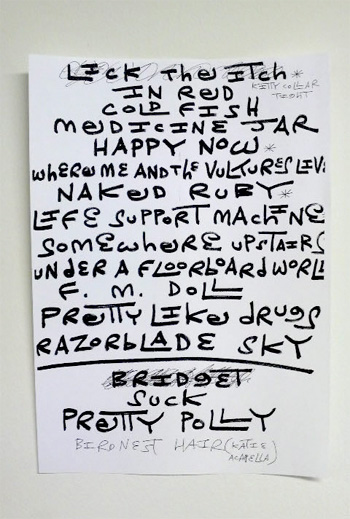 LICK the ITCH *
KITTY COLLAR
TIGHT
IN ReD
COLD FISH
MeDICINE JAR
HAPPY NOW *
wHeRe ME AND thE VULTUReS LIVE
NAKeD RuBY *
LIFE SuPPORT MACHINE
SomewheRE uPSTAIRS
UNDER A FLOORBOARD WORLD
F. M. DOLL
PReTTY LIKe dRUGS
RAZORBLADE SKY
BRIDGET
SUCK
PReTTY POLLY
BIRDNEST HAIR (KATIE
ACAPELLA)